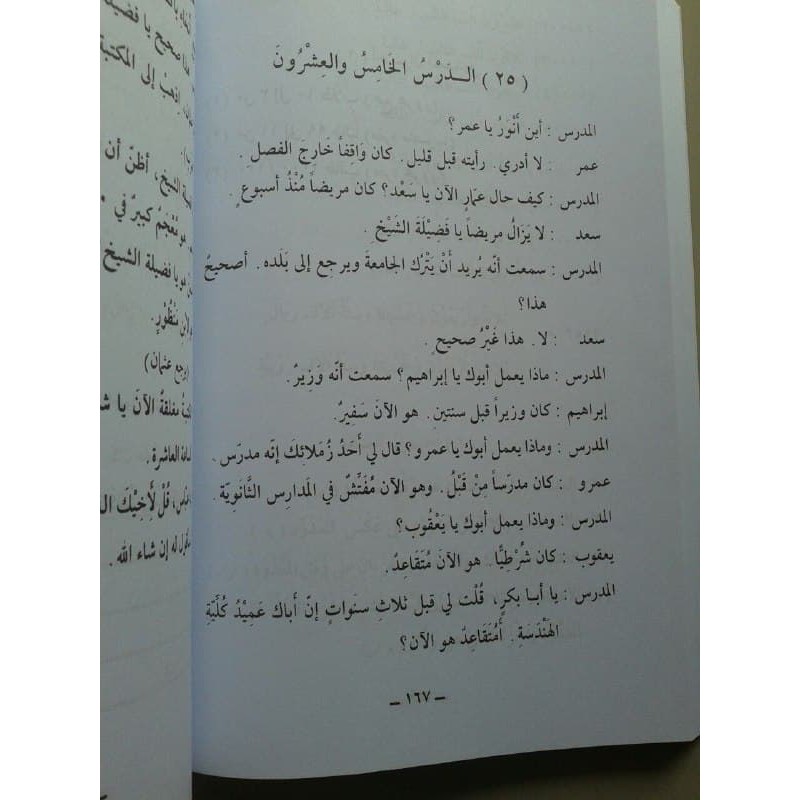 (٢٥) الـدَرْسُ الخَامِسُ والعِشْرُونَ
المدرس : أين أَنْوَرُ يا عمر؟
عمر : لا أدري. رأيته قبل قليل. كان وَاقِفاً خَارِجَ الفصلِ.
المدرس : كيف حال عمَّارٍ الآن يا سَعْد؟ كان مريضاً مُنْذُ أسبوعٍ.
سعد : لا يَزَالُ مريضاً يا فَضِيْلَةَ الشَيْخِ.
المدرس : سمعت أنّه يُريد أَنْ يَتْرُك الجامعةَ ويرجع إلى بَلَده. أصحيحٌ
هذا؟
سعد : لا. هذا غَيْرُ صحيحٍ.
المدرس : ماذا يعمل أبوك يا إبراهيم؟ سمعت أنّه وَزِيرٌ.
إبراهيم : كان وزيراً قبل سنتينِ. هو الآنَ سَفِيرٌ.
المدرس : وماذا يعمل أبوك يا عمرو؟ قال لي أَحَدُ زُمَلائِكَ إنّه مدرّس.
عمرو : كان مدرّساً مِنْ قَبْلُ. وهو الآن مُفَتِّشٌ في المَدارِس الثَّانَوِيّة.
المدرس : وماذا يعمل أبوك يا يَعْقُوب؟
يعقوب : كان شُرْطِيًّا. هو الآنَ مُتَقَاعِدٌ.
المدرس : يا أبـا بكرٍ، قُلْت لي قبل ثلاثِ سنَواتٍ إنّ أَباك عَمِيْدُ كُلِّيَّةِ
الهَنْدَسَةِ. أَمُتَقَاعِدٌ هو الآن؟
ــ ١٦٧ ــ
إلى المكتبة
يا فضيلة الشيخ
(رجع عثمان)
العاشرة.
له إن شاء الله.